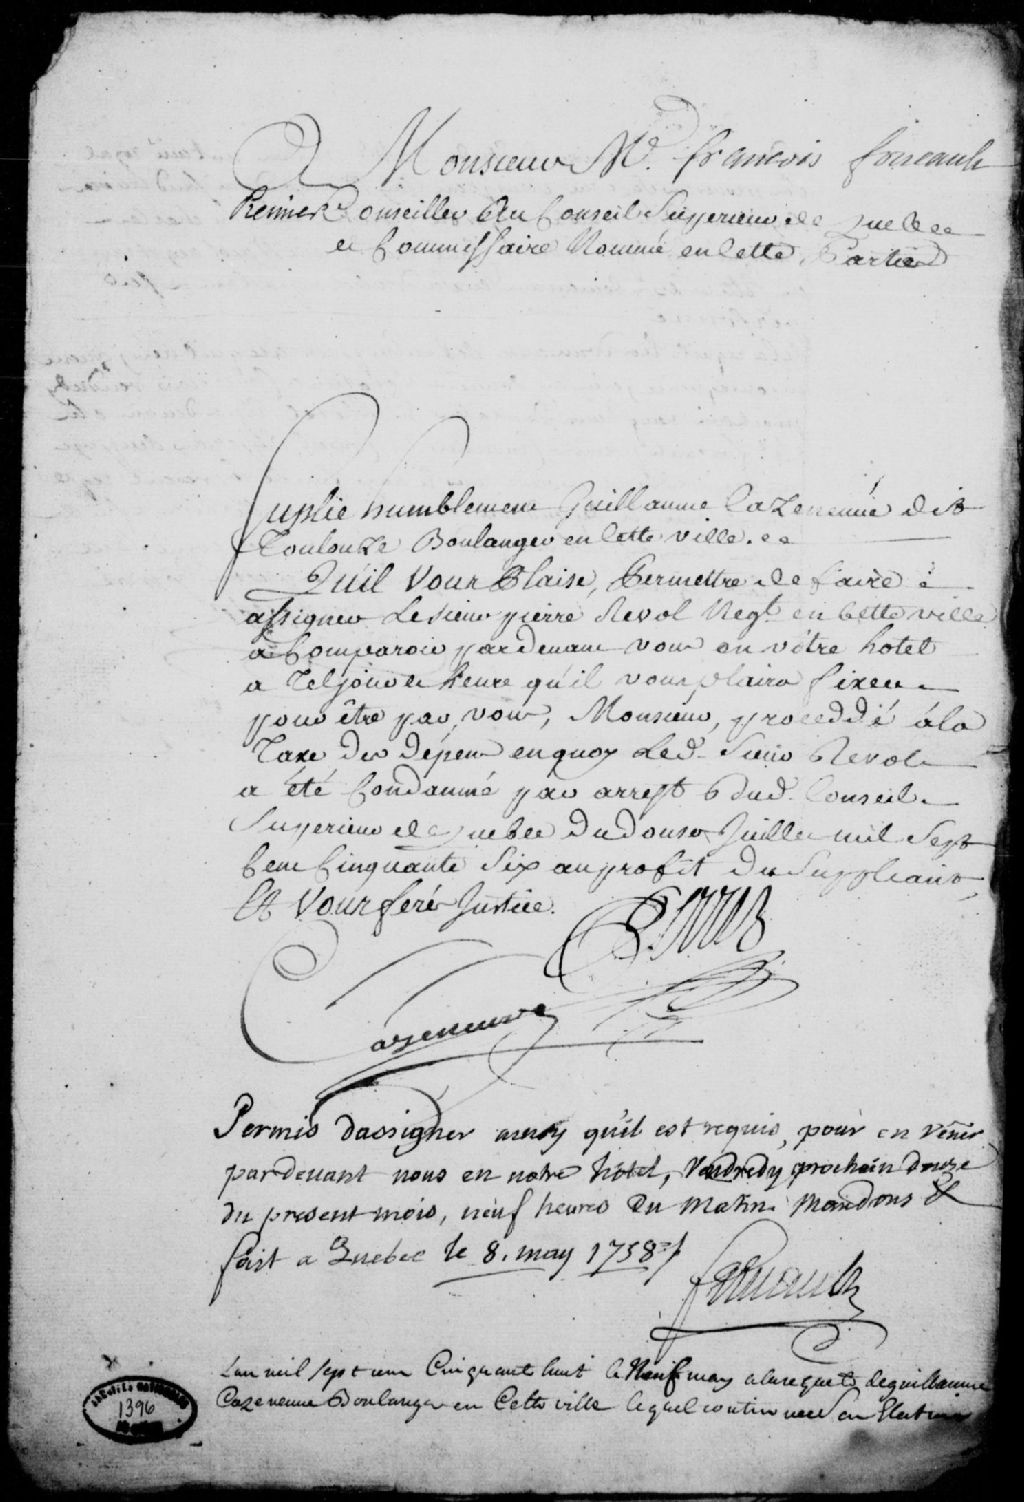 A Monsieur Mr. francois foucault
Premier Conseiller Au Conseil Superieur de Quebec
et Commissaire Nommé en Cette Partie
Suplie humblement Guillaume Cazeneuve dit
Toulouze Boulanger en Cette ville.
Quil Vous Plaise, Permettre de faire
assigner Le sieur pierre Revol Negt. en Cette ville
a Comparoir pardevant vous en vôtre hotel
a Tel jour et heure qu'il vous plaira fixer
pour être par vous, Monsieur, proceddé a la
Taxe des dépens en quoy Led. Sieur Revol
a été Condamné par arrest dud. Conseil
Superieur de Quebec du douse Juillet mil Sept
Cent Cinquante Six au profit du Supliant,
Et Vous feré Justice.
Cazeneuve
Permis dassigner ainsy qu'il est requis, pour en venir
pardevant nous en notre hôtel, Vendredy prochain douze
du present mois, neuf heures du matin Mandons &
fait a Quebec le 8. may 1758
foucault
L'an mil sept cent Cinquante huit le Neuf may a la requete de guillaume
Cazeneuve Boulanger en Cette ville lequel continuera son Election
1396